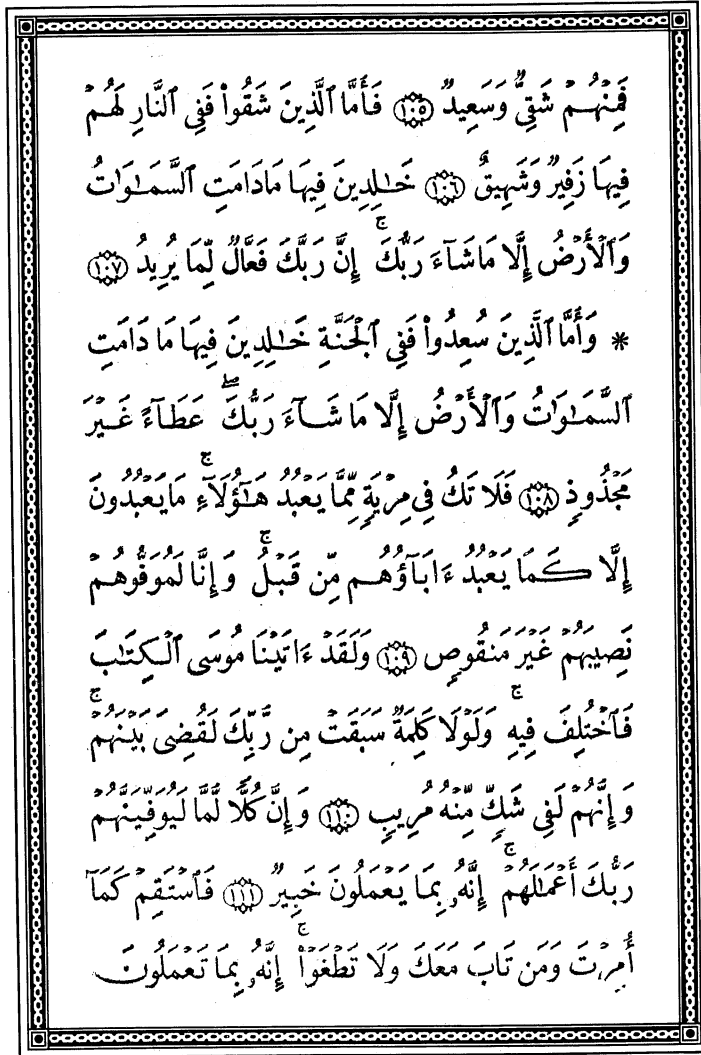 فَمِنْهُمْ شَقِىٌّ وَسَعِيدٌ ١٠٥ فَأَمَّا ٱلَّذِينَ شَقُوا۟ فَفِى ٱلنَّارِ لَهُمْ
فِيهَا زَفِيرٌ وَشَهِيقٌ ١٠٦ خَـٰلِدِينَ فِيهَا مَادَامَتِ ٱلسَّمَـٰوَٰتُ
وَٱلْأَرْضُ إِلَّا مَاشَآءَ رَبُّكَ ۚ إِنَّ رَبَّكَ فَعَّالٌ لِّمَا يُرِيدُ ١٠٧
* وَأَمَّا ٱلَّذِينَ سُعِدُوا۟ فَفِى ٱلْجَنَّةِ خَـٰلِدِينَ فِيهَا مَا دَامَتِ
ٱلسَّمَـٰوَٰتُ وَٱلْأَرْضُ إِلَّا مَا شَآءَ رَبُّكَ ۖ عَطَآءً غَيْرَ
مَجْذُوذٍ ١٠٨ فَلَا تَكُ فِى مِرْيَةٍ مِّمَّا يَعْبُدُ هَـٰٓؤُلَآءِ ۚ مَايَعْبُدُونَ
إِلَّا كَمَا يَعْبُدُ ءَابَآؤُهُم مِّن قَبْلُ ۚ وَإِنَّا لَمُوَفُّوهُمْ
نَصِيبَهُمْ غَيْرَ مَنقُوصٍ ١٠٩ وَلَقَدْ ءَاتَيْنَا مُوسَى ٱلْكِتَـٰبَ
فَٱخْتُلِفَ فِيهِ ۚ وَلَوْلَا كَلِمَةٌ سَبَقَتْ مِن رَّبِّكَ لَقُضِىَ بَيْنَهُمْ ۚ
وَإِنَّهُمْ لَفِى شَكٍّ مِّنْهُ مُرِيبٍ ١١٠ وَإِنَّ كُلًّا لَّمَّا لَيُوَفِّيَنَّهُمْ
رَبُّكَ أَعْمَـٰلَهُمْ ۚ إِنَّهُۥ بِمَا يَعْمَلُونَ خَبِيرٌ ١١١ فَٱسْتَقِمْ كَمَآ
أُمِرْتَ وَمَن تَابَ مَعَكَ وَلَا تَطْغَوْا۟ ۚ إِنَّهُۥ بِمَا تَعْمَلُونَ